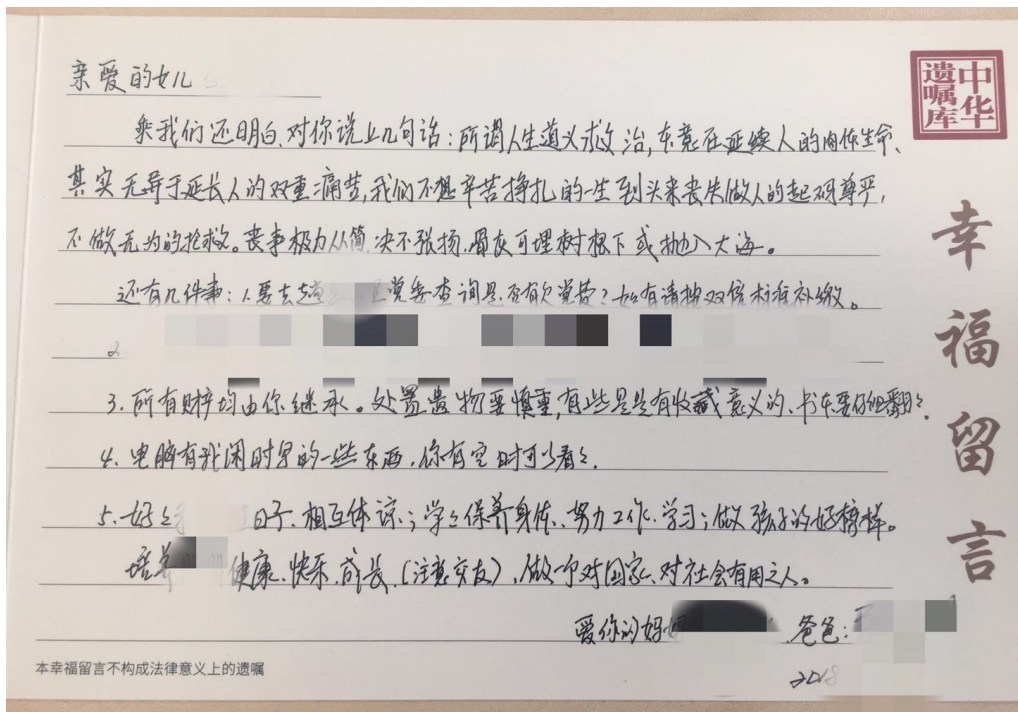 亲爱的女儿
乘我们还明白,对你说上几句话:所谓人生道义救治,本意在延续人的肉体生命、
其实无异于延长人的双重痛苦,我们不想辛苦挣扎的一生到头来丧失做人的起码尊严,
不做无为的抢救。丧事极力从简,决不张扬,骨灰可埋树根下或抛入大海。
还有几件事:1.要去 党委查询是否有欠党费?如有请按双倍标准补缴。
2
3.所有财产均由你继承。处置遗物要慎重,有些是具有收藏意义的、书本要仔细翻翻々。
4.电脑有我闲时写的一些东西,你有空时可以看々.
5.好々 日子、相互体谅;学々保养身体、努力工作、学习;做孩子的好榜样。
培养 健康、快乐、成长、(注意交友),做一个对国家、对社会有用之人。
爱你的妈妈 爸爸:
2018
本幸福留言不构成法律意义上的遗嘱
中华遗嘱库
幸福留言